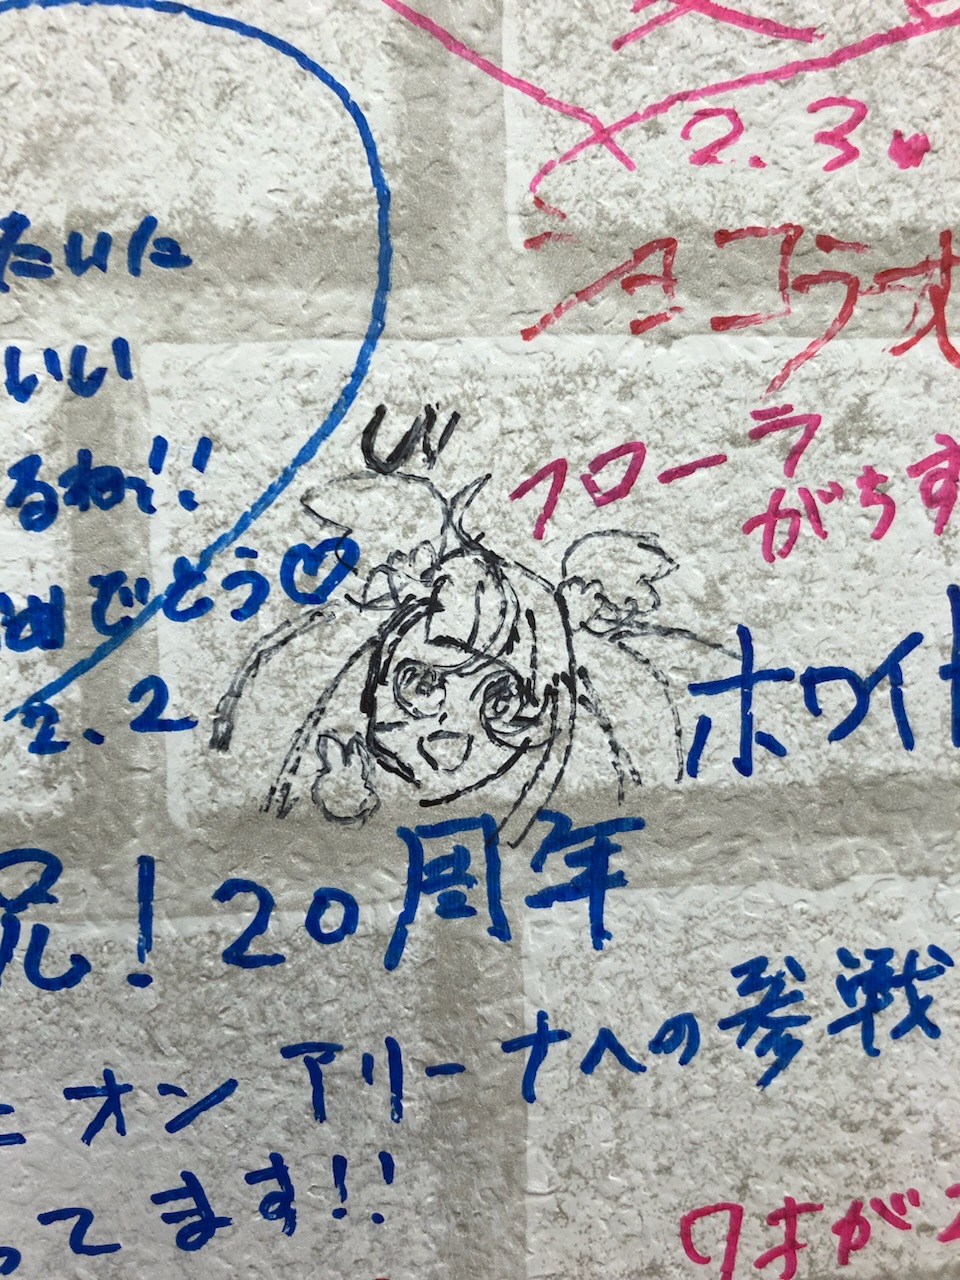 2.3
たいた
ショコラオ
いい
び
フローラ
がちす
るね!!
でとう♡
2.2
ホワイト
祝!20周年
ニオンアリーナへの参戦
ってます!!
ワオがス